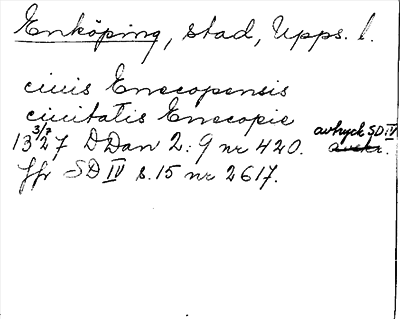 Enköping, stad, Upps. l.
civis Enecopensis
civitatis Enecopie
1327 3/7 DDan 2:9 nr 420. avtryck SD IV avskr.
ffr SD IV s.15 nr 2617.